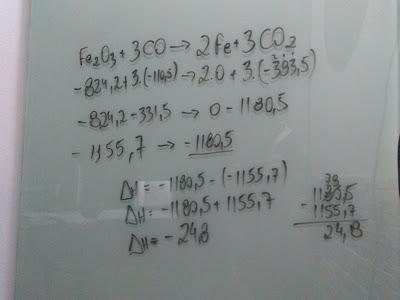 Fe₂O₃ + 3CO → 2Fe + 3CO₂
-824,2 + 3.(-110,5) → 2.0 + 3.(-393,5)
-824,2 - 331,5 → 0 - 1180,5
- 1155,7 → -1180,5
ΔH = -1180,5 - (-1155,7)
ΔH = -1180,5 + 1155,7
ΔH = - 24,8
1180,5
- 1155,7
24,8